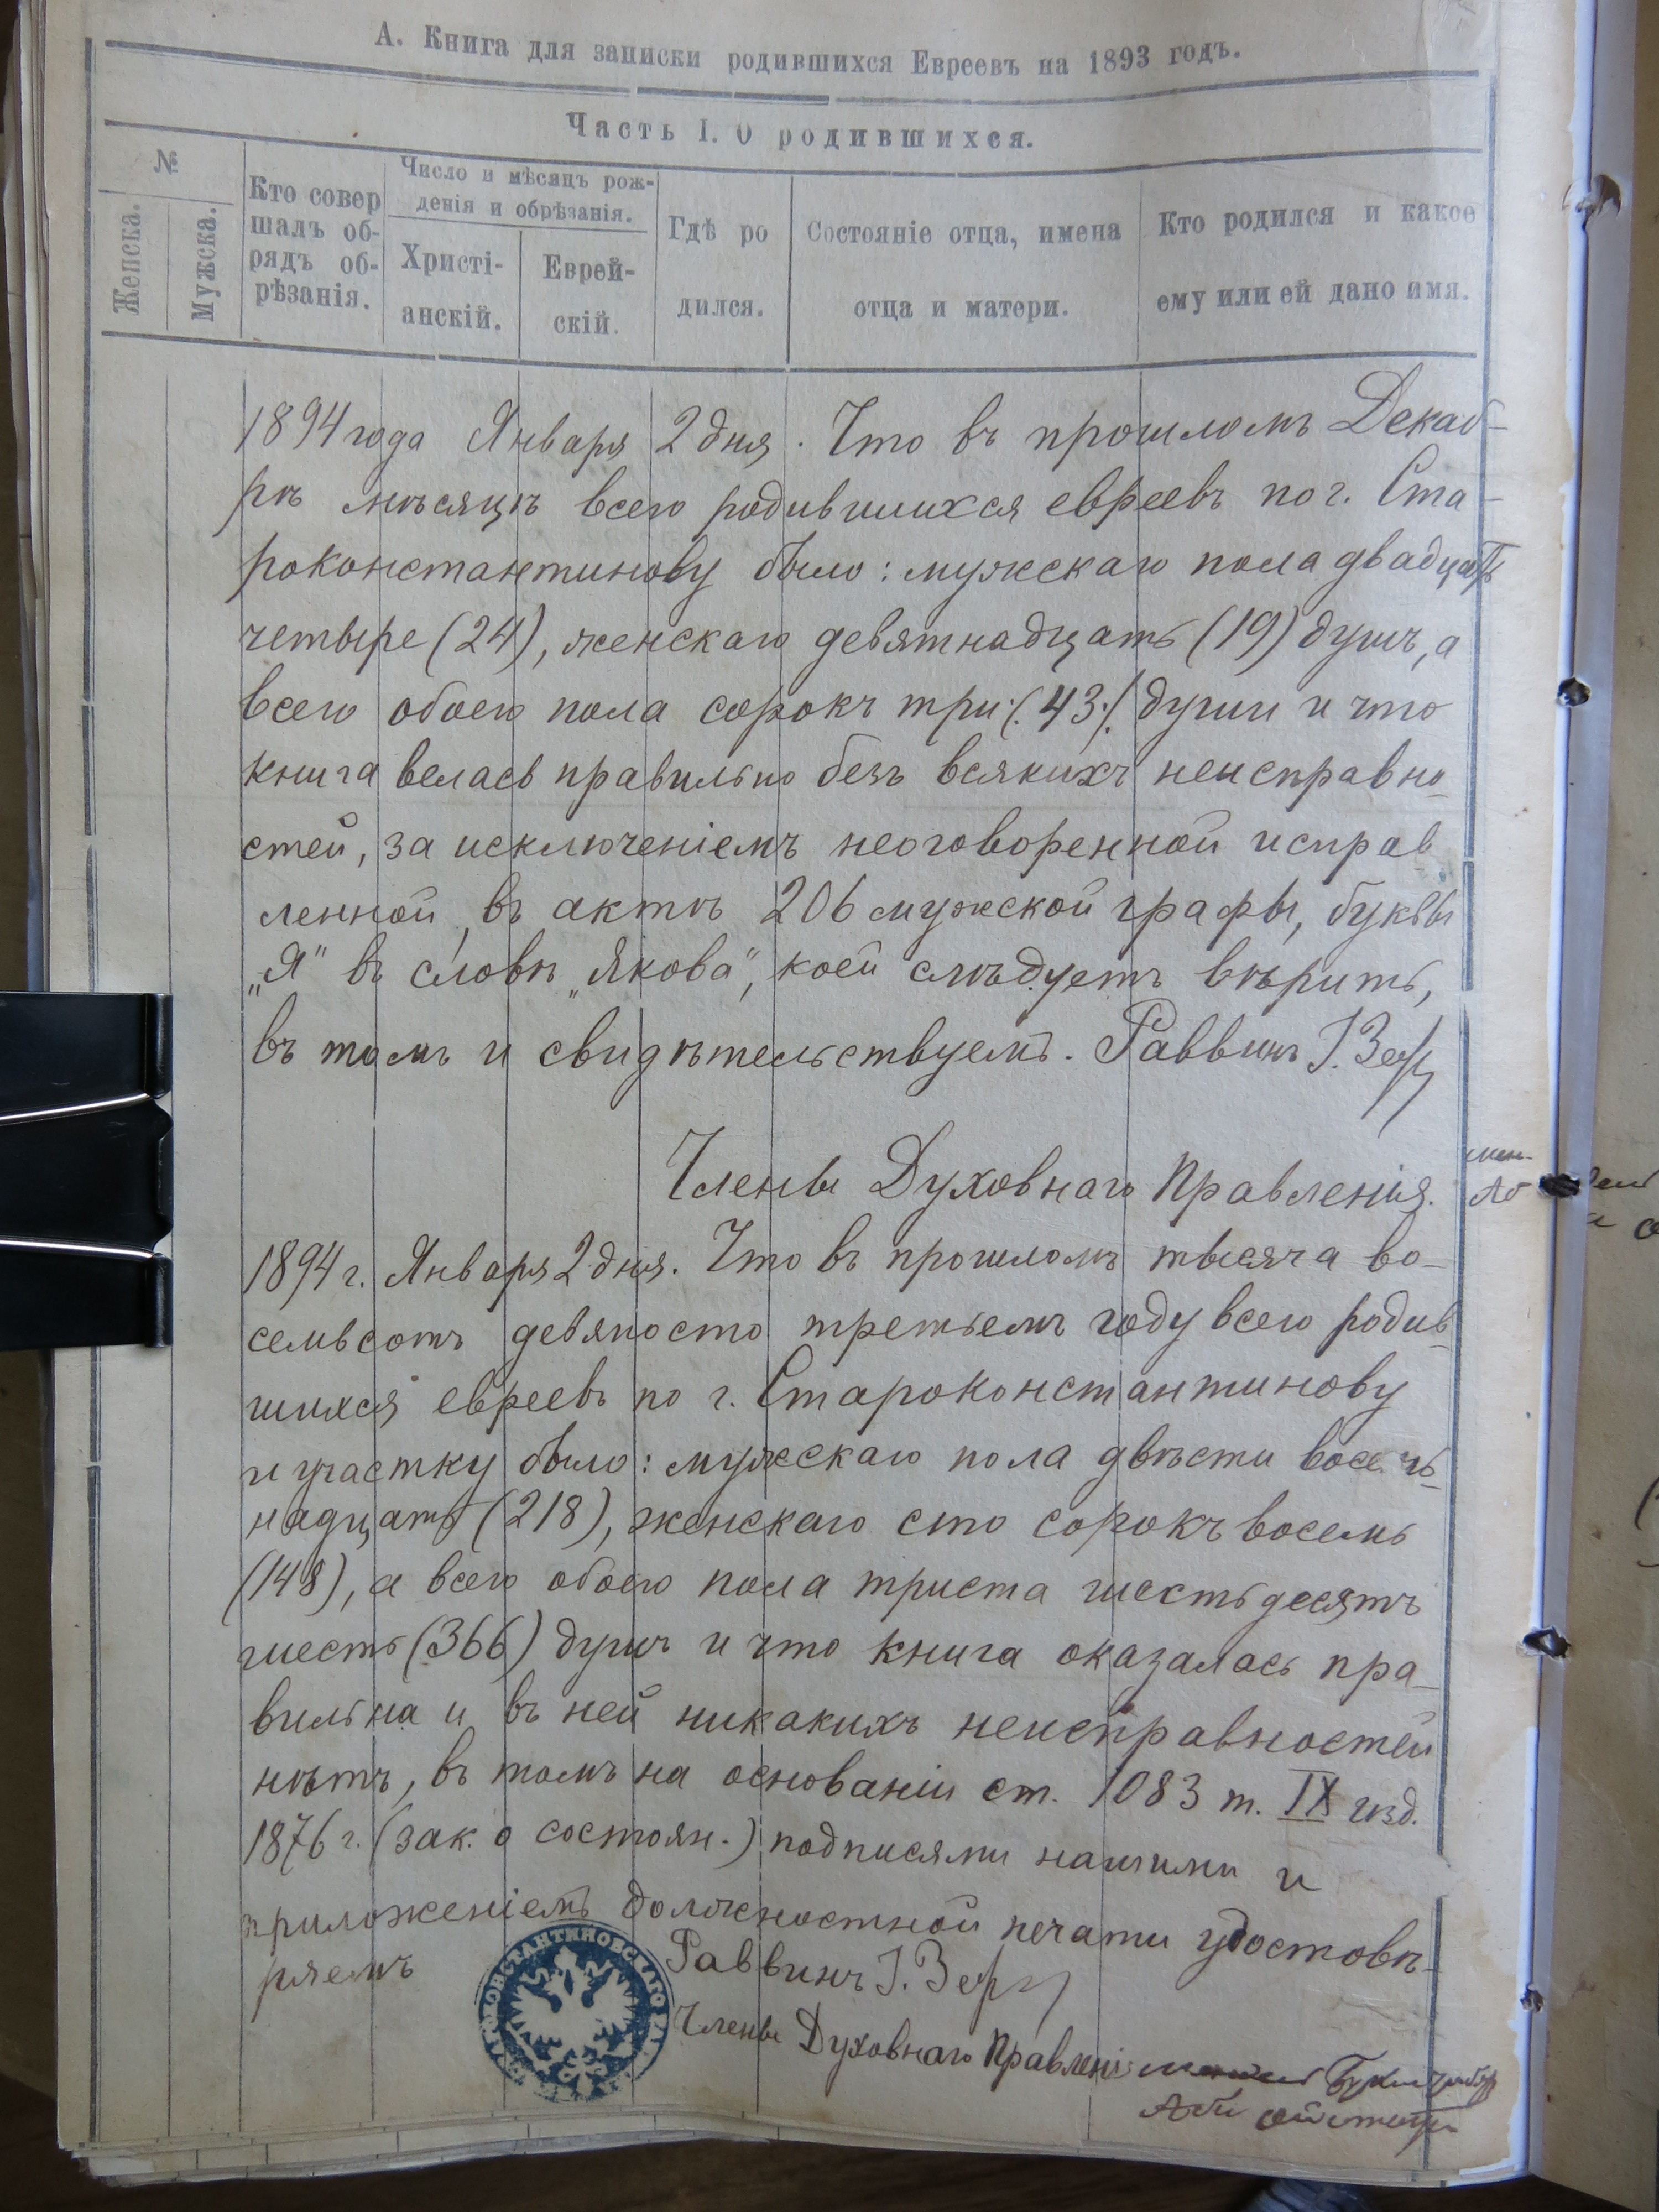 А. Книга для записки родившихся Евреевъ на 1893 годъ.
Часть I. О родившихся.
№
Женска.
Мужска.
Кто совер
шалъ об-
рядъ об-
рѣзанія.
Число и мѣсяцъ рож-
денія и обрѣзанія.
Христі-
анскій.
Еврей-
скій.
Гдѣ ро
дился.
Состояніе отца, имена
отца и матери.
Кто родился и какое
ему или ей дано имя.
1894 года Января 2 дня. Что въ прошломъ Декаб-
рѣ мѣсяцѣ всего родившихся евреевъ по г. Ста-
роконстантинову было: мужескаго пола двадцать
четыре (24), женскаго девятнадцать (19) душъ, а
всего обоего пола сорокъ три (43) души и что
книга велась правильно безъ всякихъ неисправно-
стей, за исключеніемъ неоговоренной исправ-
ленной, въ актѣ 206 мужской графы, буквы
„Я" въ словѣ „Якова", коей слѣдуетъ вѣрить,
въ томъ и свидѣтельствуемъ. Раввинъ І.
Члены Духовнаго Правленія.
1894 г. Января 2 дня. Что въ прошломъ тысяча во-
семьсотъ девяносто третьемъ году всего родив-
шихся евреевъ по г. Староконстантинову
и участку было: мужескаго пола двѣсти восем-
надцать (218), женскаго сто сорокъ восемь
(148), а всего обоего пола триста шестьдесятъ
шесть (366) душъ и что книга оказалась пра-
вильна и въ ней никакихъ неисправностей
нѣтъ, въ томъ на основаніи ст. 1083 т. IX изд.
1876 г. (зак. о состоян.) подписями нашими и
приложеніемъ должностной печати удостовѣ-
ряемъ
Раввинъ І.
Члены Духовнаго Правленія